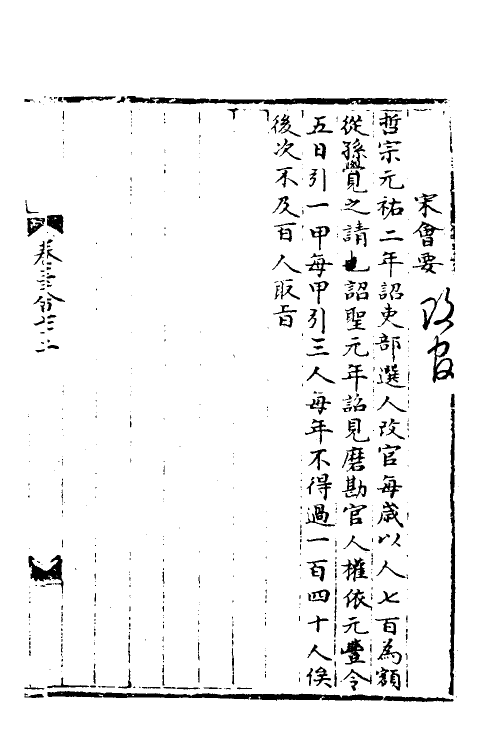 宋會要
改官
哲宗元祐二年詔吏部選人改官每歲以人七百為額
從孫覺之請也詔聖元年詔見磨勘官人權依元豐令
五日引一甲每甲引三人每年不得過一百四十人俟
後次不及百人取旨